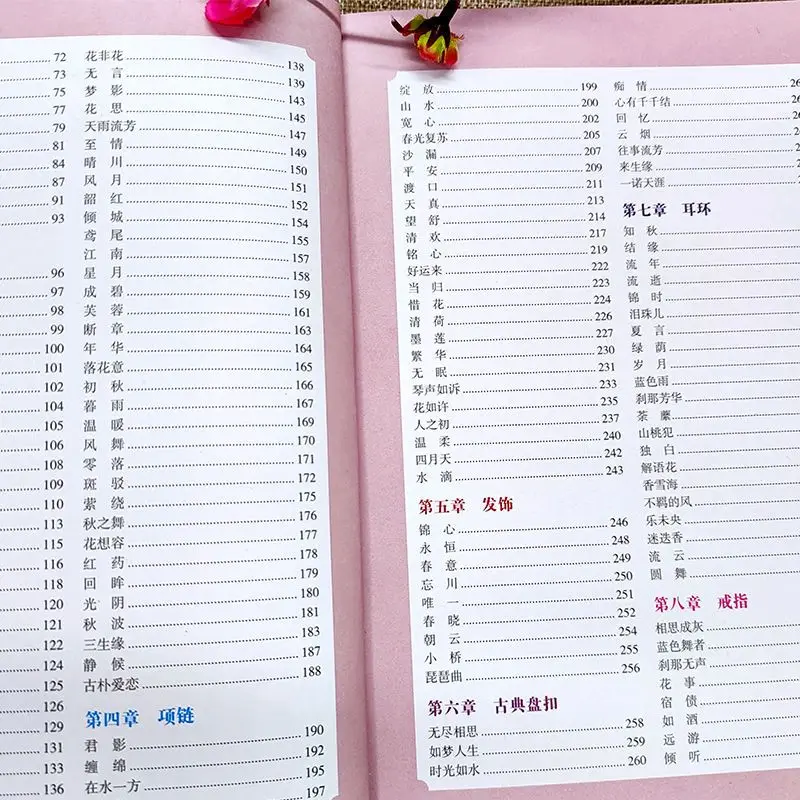 72
73
75
77
79
81
84
87
91
93
96
97
98
99
100
101
102
104
105
106
108
109
110
113
115
116
118
120
121
122
124
125
126
129
131
133
136
花非花 138
无 言 139
梦 影 143
花 思 145
天雨流芳 147
至 情 149
晴 川 150
风 月 151
韶 红 152
倾 城 154
鸢 尾 155
江 南 157
星 月 158
成 碧 159
芙 蓉 161
断 章 163
年 华 164
落花意 165
初 秋 166
暮 雨 167
温 暖 169
风 舞 170
零 落 171
斑 驳 172
萦 绕 175
秋之舞 176
花想容 177
红 药 178
回 眸 179
光 阴 180
秋 波 181
三生缘 183
静 候 187
古朴爱恋 188
第四章 项链
君 影 190
缠 绵 192
在水一方 195
197
绽 放 199
山 水 200
宽 心 202
春光复苏 205
沙 漏 207
平 安 209
渡 口 211
天 真 213
望 舒 214
清 欢 217
铭 心 219
好运来 222
当 归 223
惜 花 224
清 荷 226
墨 莲 227
繁 华 230
无 眠 231
琴声如诉 233
花如许 235
人之初 237
温 柔 240
四月天 242
水 滴 243
第五章 发饰
锦 心 246
永 恒 248
春 意 249
忘 川 250
唯 一 251
春 晓 252
朝 云 254
小 桥 255
琵琶曲 256
第六章 古典盘扣
无尽相思 258
如梦人生 259
时光如水 260
痴 情
心有千千结
回 忆
云 烟
往事流芳
来生缘
一诺天涯
第七章 耳环
知 秋
结 缘
流 年
流 逝
锦 时
泪珠儿
夏 言
绿 荫
岁 月
蓝色雨
刹那芳华
荼 蘼
山桃犯
独 白
解语花
香雪海
不羁的风
乐未央
迷迭香
流 云
圆 舞
第八章 戒指
相思成灰
蓝色舞者
刹那无声
花 事
宿 债
如 酒
远 游
倾 听